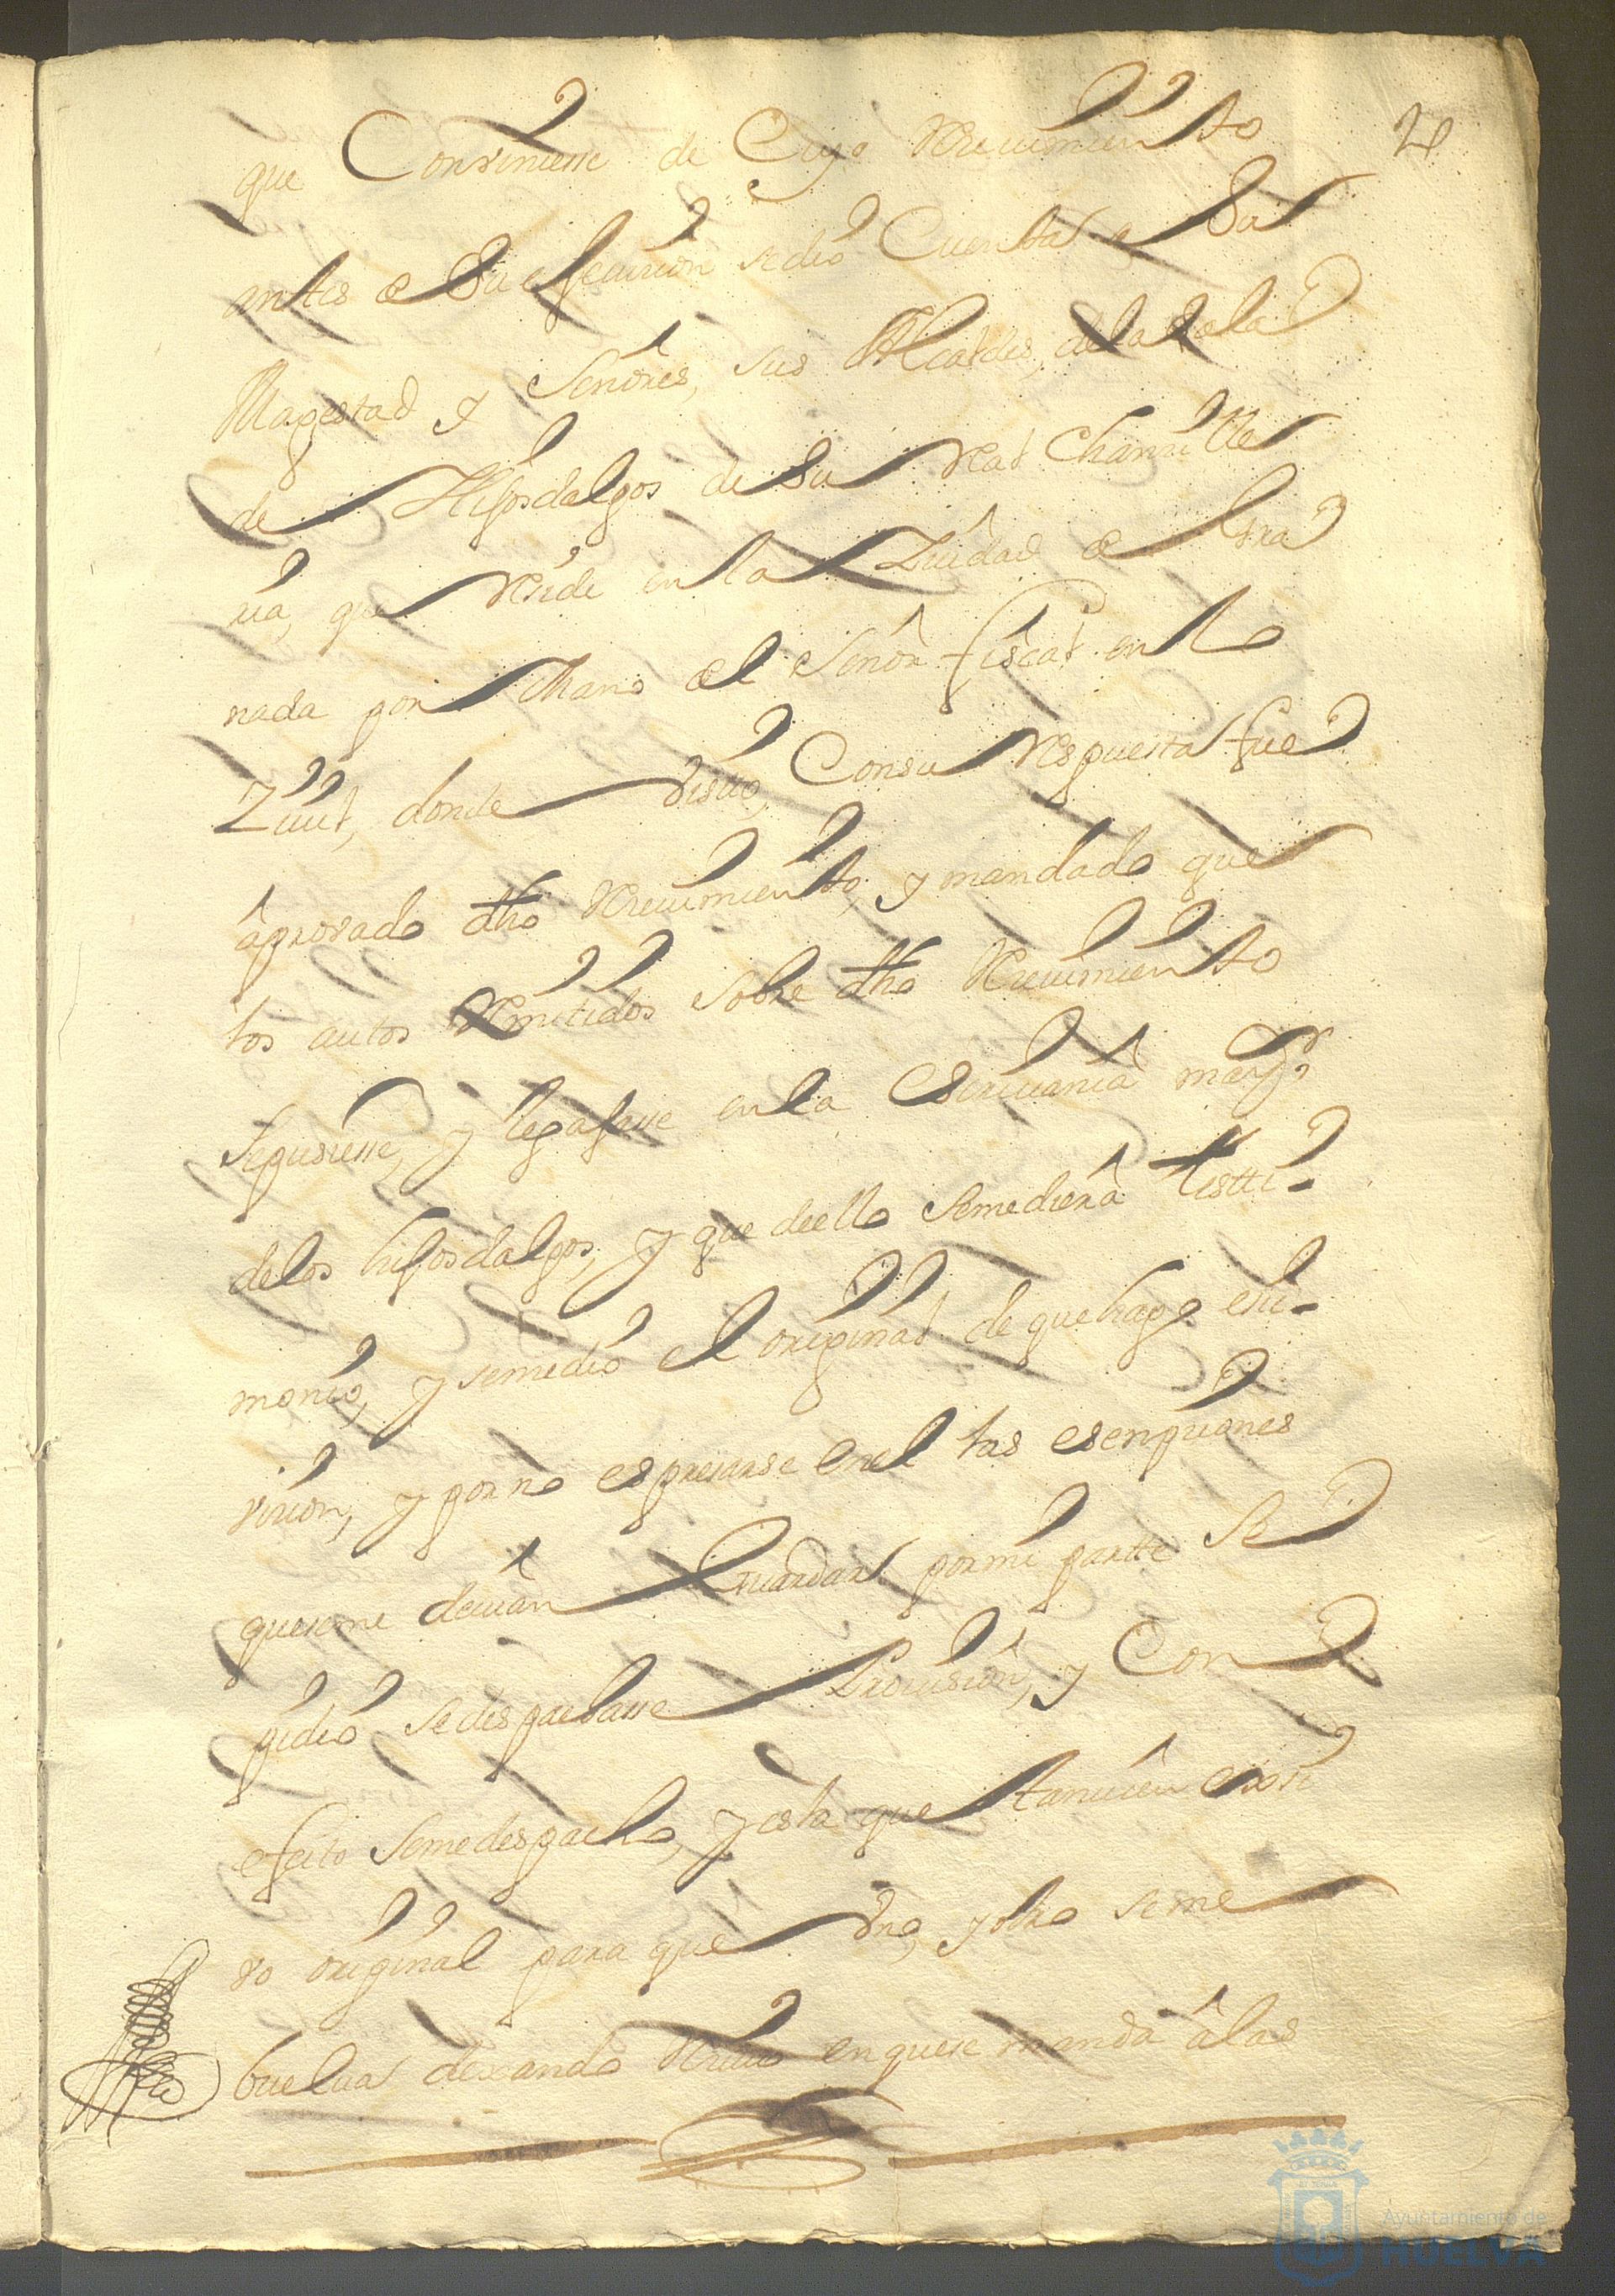 2
que Conviniesse de Cuyo Reciuimiento
antes de Su ejecucion se dio Cuenta a Su
Magestad y Señores, sus Alcaldes, de la Sala
de Hijosdalgos de Su Real Chanzille
ria, que Reside en la Ziudad de Gra
nada por Mano del Señor fiscal en lo
Ziuil, donde Visto, Con su Respuesta fue
aprovado dho Reciuimiento, y mandado que
los autos Remitidos Sobre dho Reciuimiento
Se pusiesse, y legajasse en la Escriuania mayor
de los hijosdalgos, y que de ello Se me diera Testti-
monio, y se me dio el original de que hago exsi-
vicion, y por no espresarse en el las esempciones
que se me deuian Guardar por mi partte Se
pidio Se despachasse Provision, y Con
efecto Se me despacho, y esta que tamuien exsivi
vo original para que Vno, y otro se me
buelua dexando Reciuo en que se manda a las
Ayuntamiento de
HUELVA